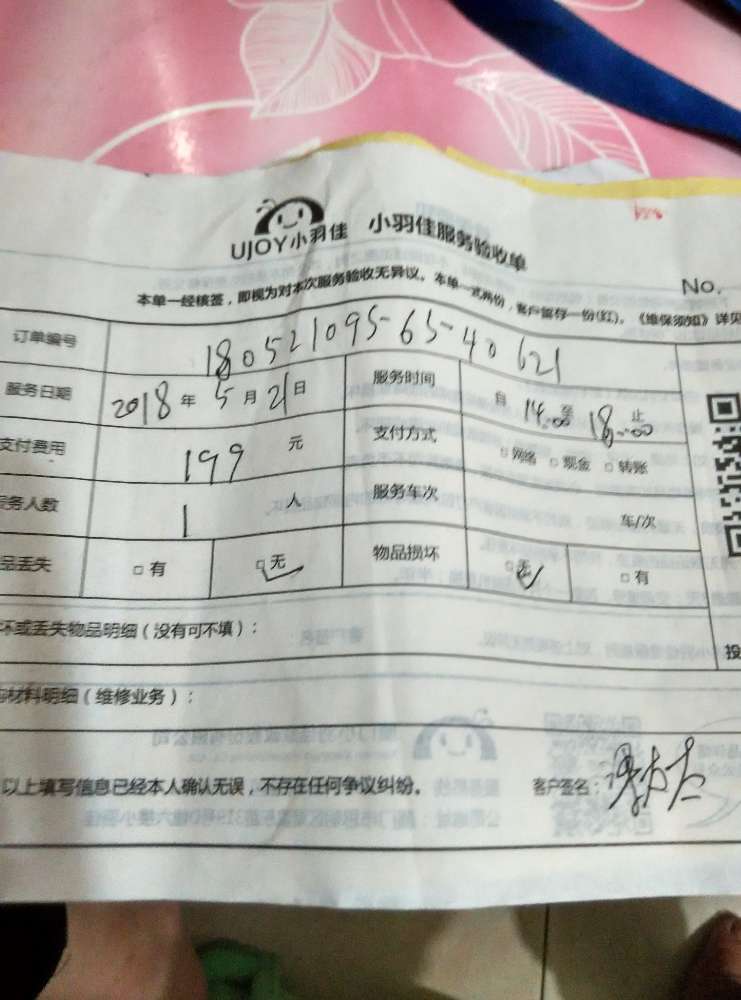 UJOY小羽佳 小羽佳服务验收单
No.
本单一经核签，即视为对本次服务验收无异议。本单一式两份，客户留存一份(红)。《维保须知》详见
订单编号 180521095-65-40621
服务日期 2018年5月21日 服务时间 自14:00至18:00止
支付费用 199元 支付方式 □网络 □现金 □转账
务人数 1人 服务车次 车/次
品丢失 □有 □无 物品损坏 □无 □有
坏或丢失物品明细（没有可不填）：
投
材料明细（维修业务）：
以上填写信息已经本人确认无误，不存在任何争议纠纷。 客户签名：